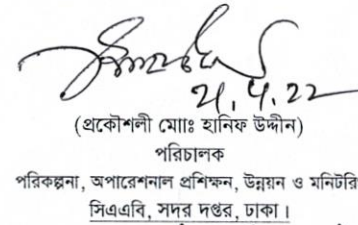 ২১.৭.২২
(প্রকৌশলী মোাঃ হানিফ উদ্দীন)
পরিচালক
পরিকল্পনা, অপারেশনাল প্রশিক্ষন, উন্নয়ন ও মনিটরি
সিএএবি, সদর দপ্তর, ঢাকা।